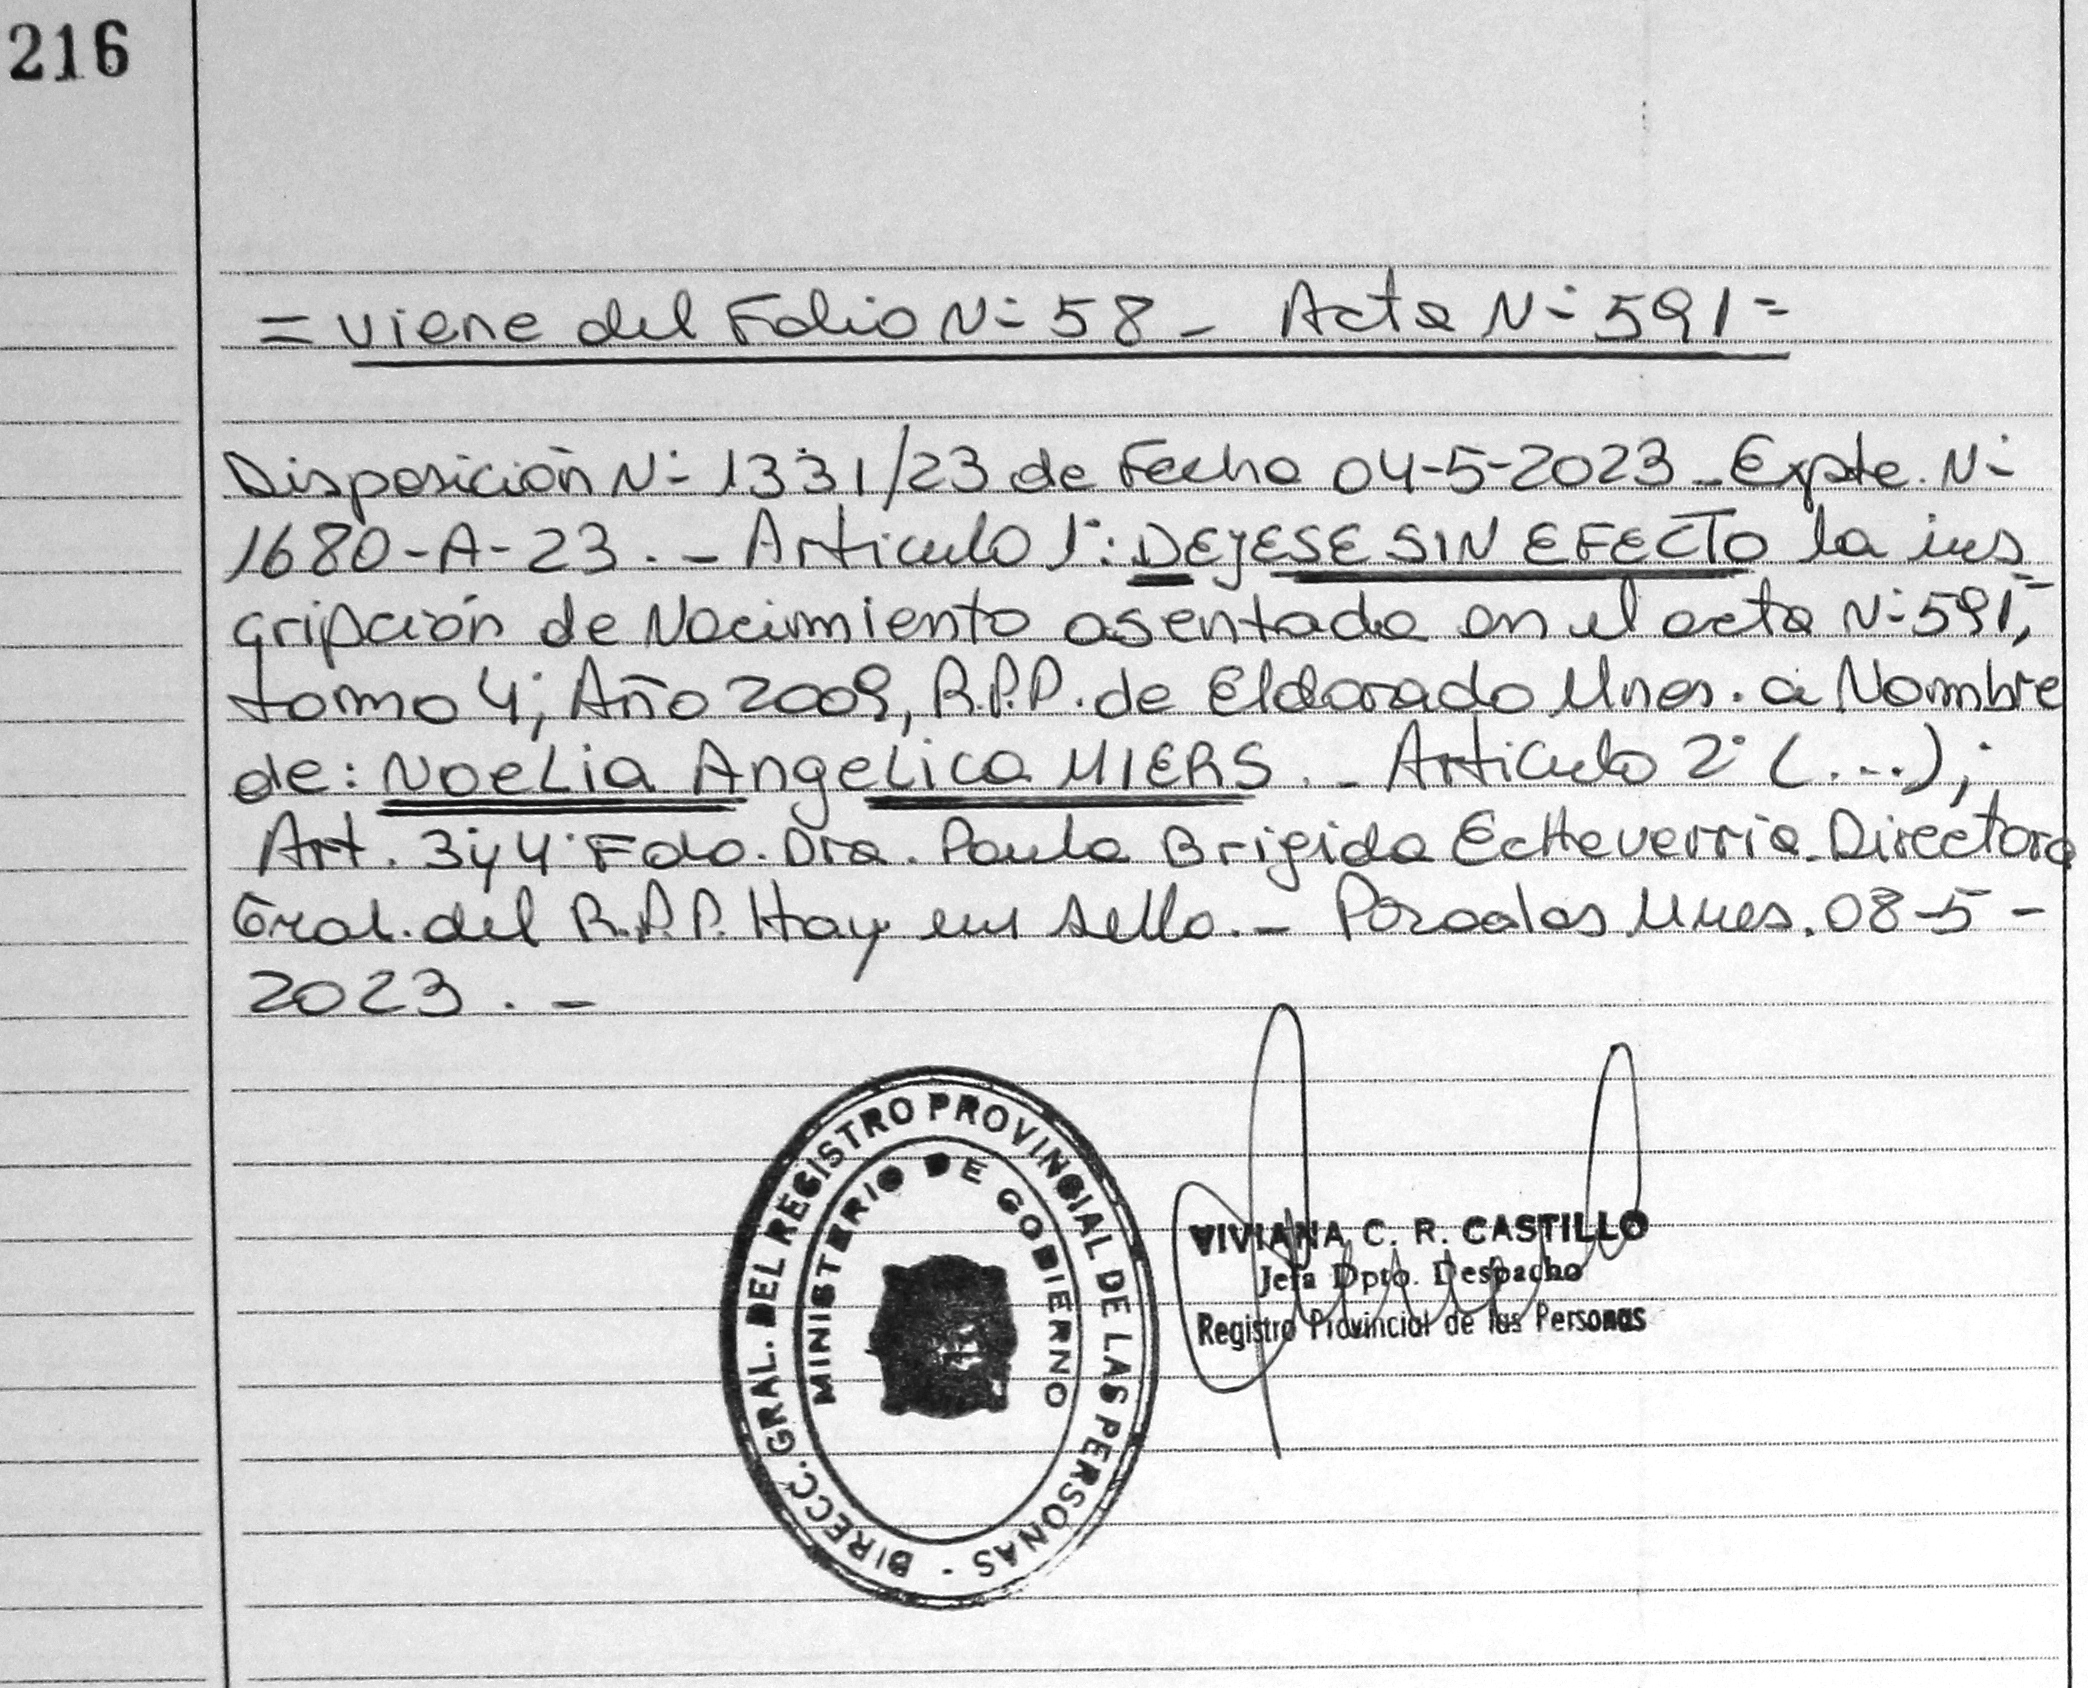 216
= viene del Folio N= 58 - Acta N= 591 =
Disposición N= 1331/23 de Fecha 04-5-2023 - Expte. N=
1680-A-23. - Articulo 1°: DEJESE SIN EFECTO la ins
cripción de Nacimiento asentada en el acta N= 591,
tomo 4; Año 2009, R.P.P. de Eldorado Mnes. a Nombre
de: NOELIA Angelica MIERS. - Articulo 2° (...);
Art. 3 y 4° Fdo. Dra. Paula Brigida Echeverria. Directora
Gral. del R.P.P. Hay un sello. - Posadas Mnes. 08-5-
2023. -
DIRECC. GRAL. DEL REGISTRO PROVINCIAL DE LAS PERSONAS -
MINISTERIO DE GOBIERNO
VIVIANA C. R. CASTILLO
Jefa Dpto. Despacho
Registro Provincial de las Personas